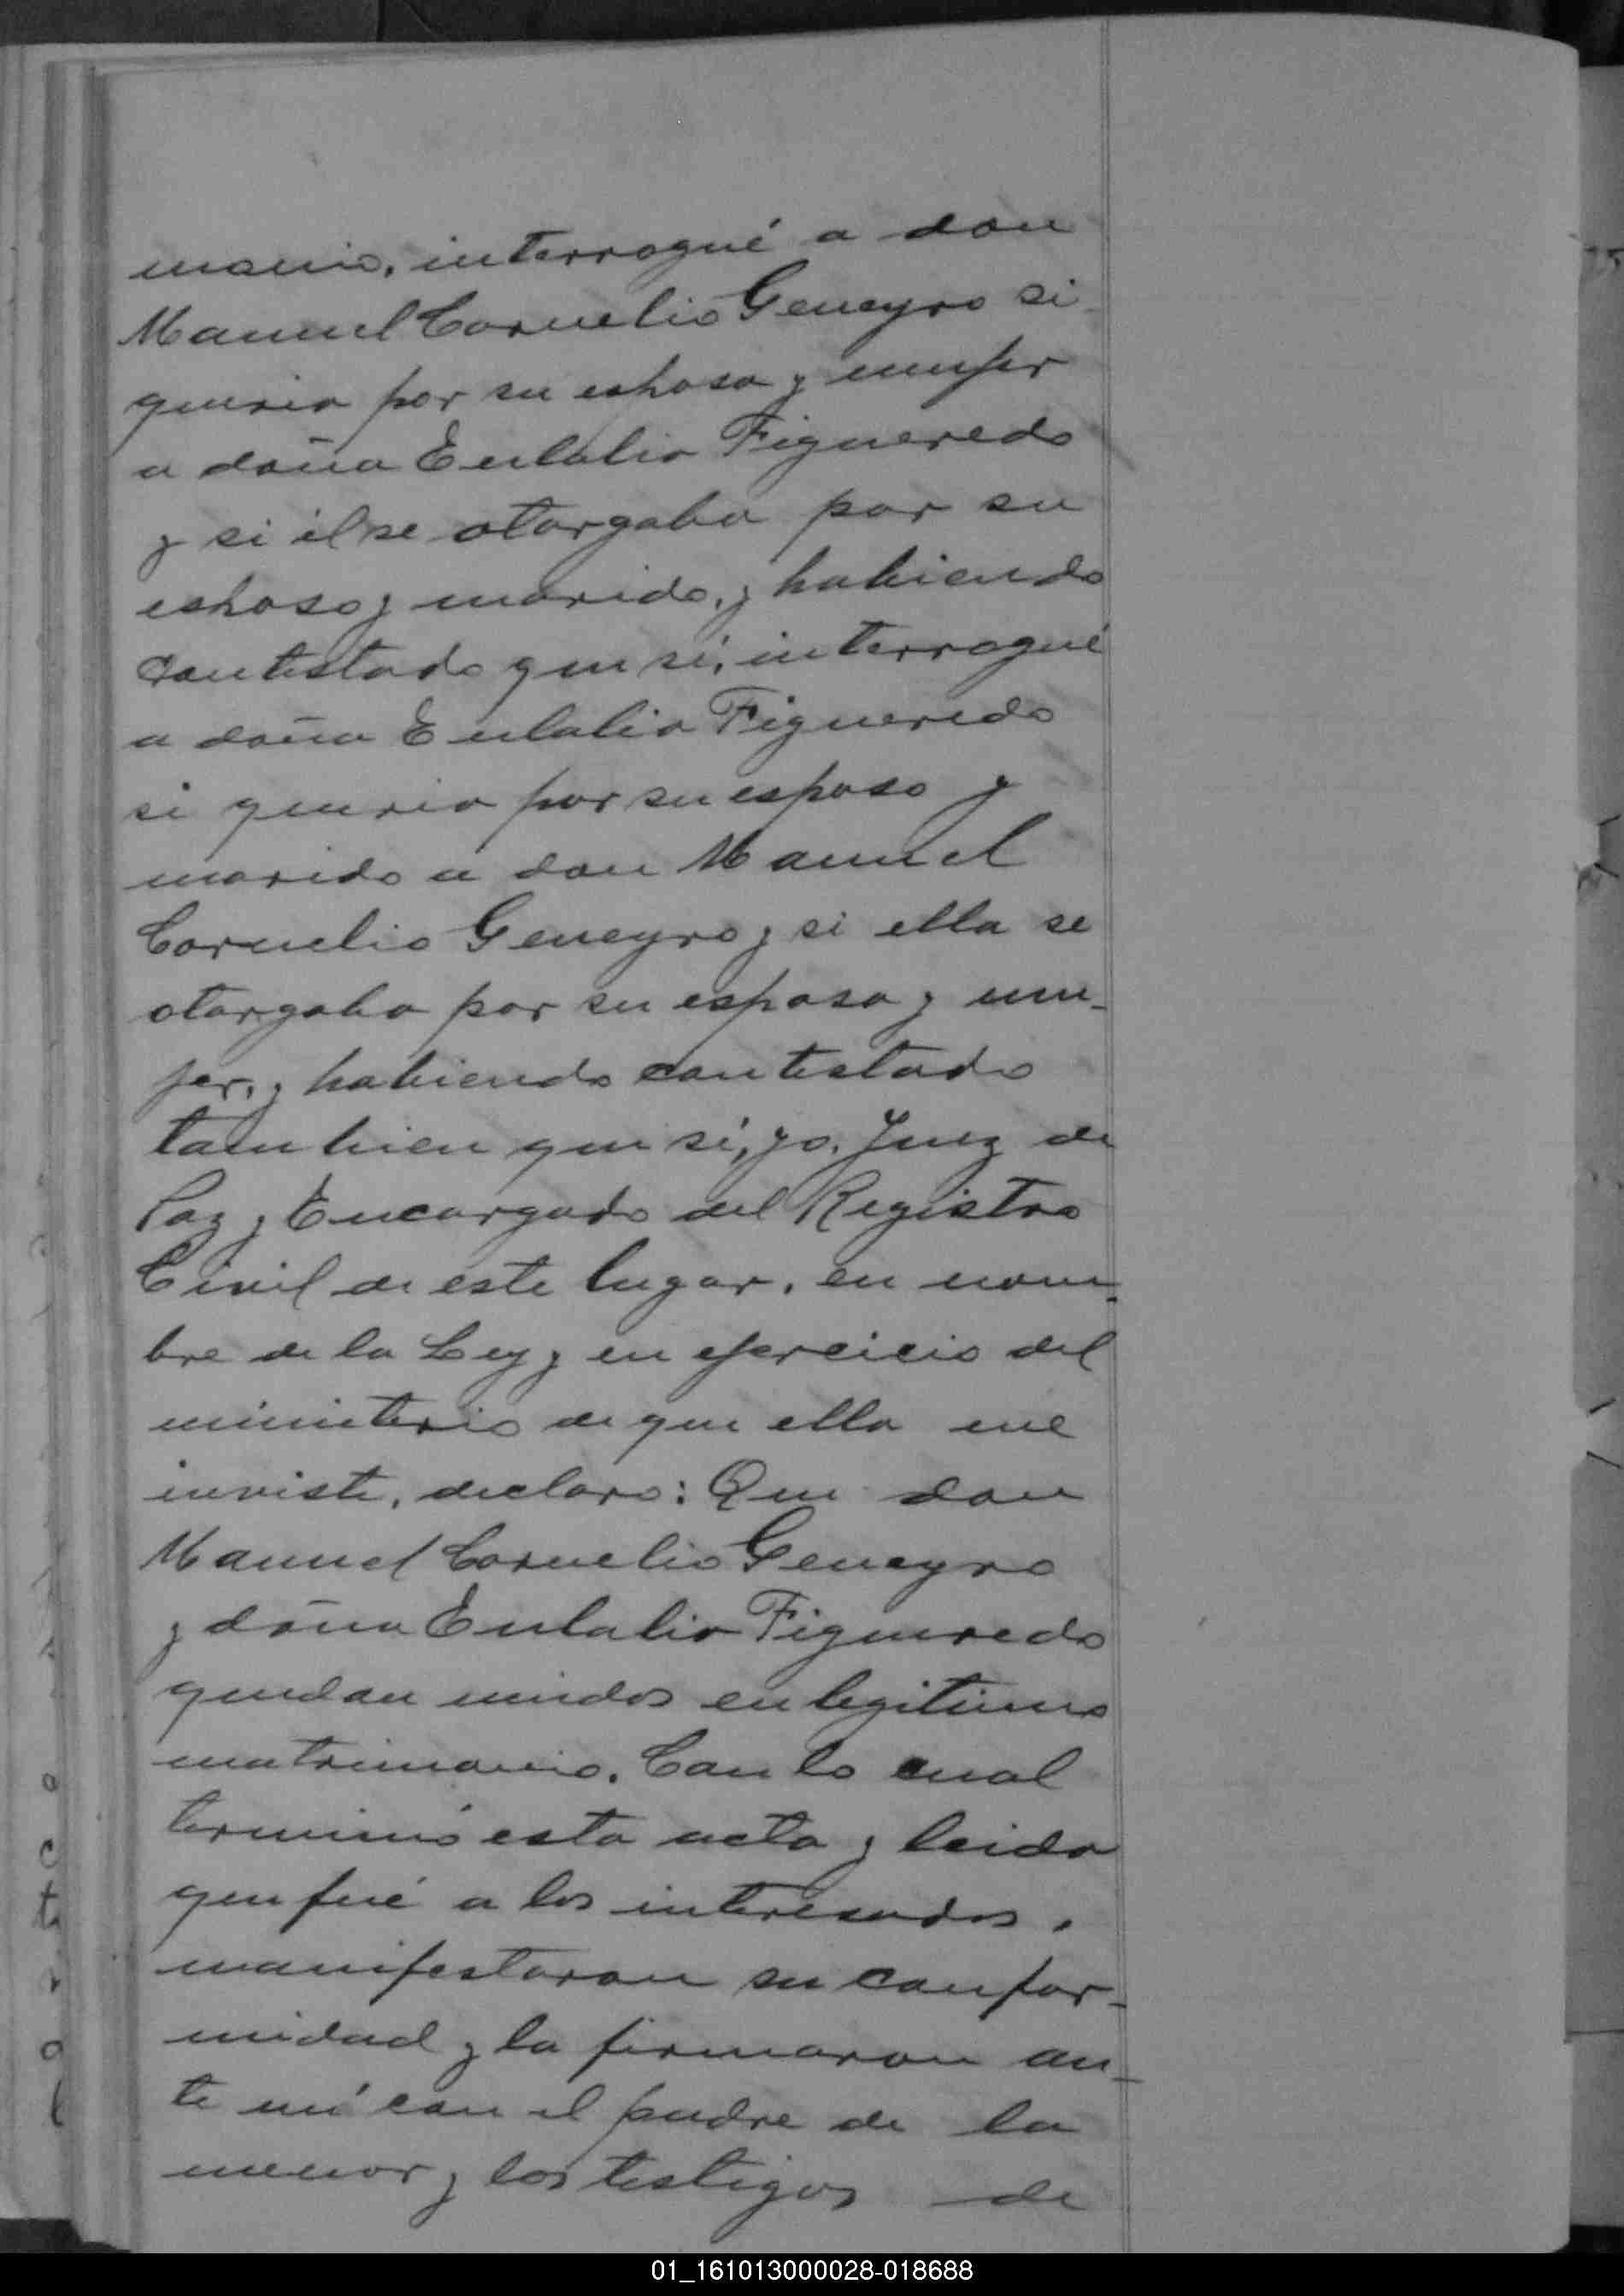 monio, interrogué a don
Manuel Cornelio Geneyro si
queria por su esposa y mujer
a doña Eulalia Figueredo
y si él se otorgaba por su
esposo y marido, y habiendo
contestado que sí, interrogué
a doña Eulalia Figueredo
si queria por su esposo y
marido a don Manuel
Cornelio Geneyro y si ella se
otorgaba por su esposa y mu-
jer, y habiendo contestado
tambien que sí, yo, Juez de
Paz y Encargado del Registro
Civil de este lugar, en nom-
bre de la Ley y en ejercicio del
ministerio de que ella me
inviste, declaro: Que don
Manuel Cornelio Geneyro
y doña Eulalia Figueredo
quedan unidos en legitimo
matrimonio. Con lo cual
terminó esta acta y leida
que fué a los interesados,
manifestaron su confor-
midad y la firmaron an-
te mí con el padre de la
menor y los testigos de
01_161013000028-018688